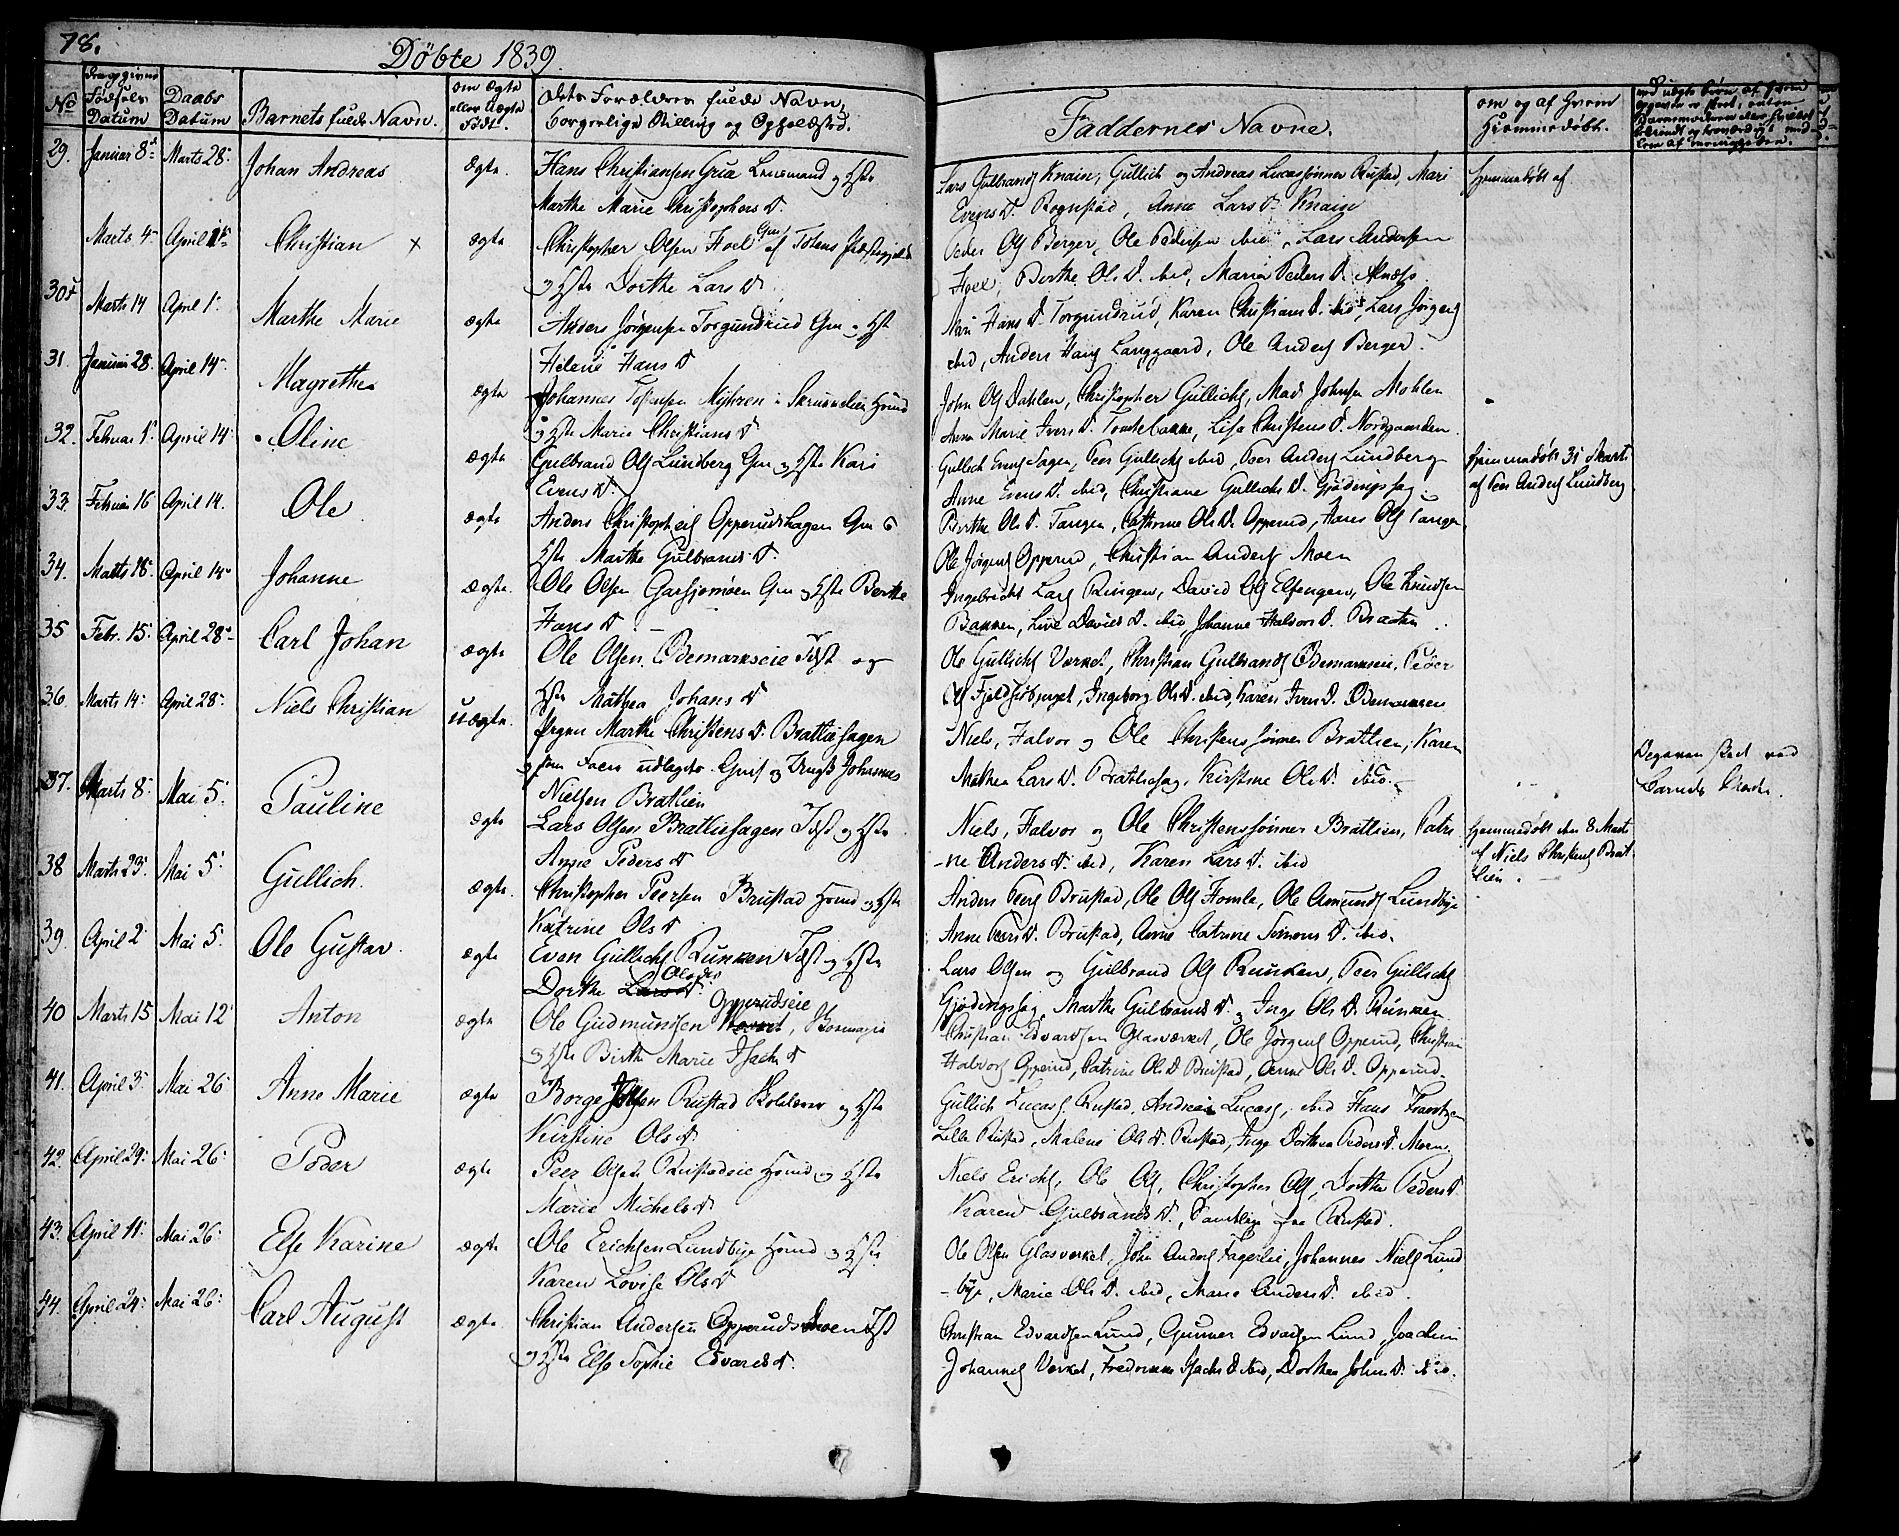 78.
Döbte 1839.
No
Fødsels Datum
Daabs Datum
Barnets fulde Navn.
om Ægte eller Uægte Født.
dets Forældres fulde Navn, borgerlige Stilling og Opholdssted.
Faddernes Navne.
om og af Hvem Hjemmedøbt.
29. Januar 8 Marts 28 Johan Andreas ægte Hans Christiansen Lensmand og Hst
Marthe Marie Christophers D.
Lars Gulbrands Knain, Gullich og Andreas Lucassønner Rustad, Mari
Evens D. Rognstad, Anne Lars D. Knain
Hjemmedøbt af
Marts 4 April 1 Christian × ægte Christopher Olsen Hoel Gm af Totens Præstegjeld
og Hst Dorthe Lars D
Peder Ols Berger, Ole Pedersen ibid, Lars Andersen
Hoel, Berthe Ols D. ibid, Maria Peders D.
30 Marts 14 April 1 Marthe Marie ægte Anders Jørgensen Torgundrud Gm og Hst
Helene Hans D
Hans D. Torgundrud, Karen Christians D. ibid, Lars Jørgens
ibid, Anders Hans Langgaard, Ole Anders Berger.
31. Januar 28 April 14 Magrethea ægte Johannes Myhren Hmd
og Hst Marie Christians D
John Ols Dahlen, Christopher Gullichs, Mads Johnsen Mohlen
Anne Marie Ivers D. Lise Christens D. Nordgaarden.
32. Februar 1 April 14 Oline ægte Gulbrand Ols Lundberg Gm og Hst Kari
Evens D.
Gullich Evens Sagen, Peer Gullichs ibid, Peer Anders Lundberg
Anne Evens D. ibid, Christiane Gullichs D. Gjødingssag
Hjemmedøbt 31 Marts
af Peer Anders Lundberg
33. Februar 16 April 14. Ole ægte Anders Christophers Opperudshagen Gm og
Hst Marthe Gulbrands D.
Berthe Ols D. Tangen, Cathrine Ols D. Opperud, Hans Ols Tangen
Ole Jørgens Opperud, Christian Anders Moen
34. Marts 18 April 14 Johanne ægte Ole Olsen Garsjømoen Gm og Hst Berthe
Hans D.
Ingebricht Lars Ringen, David Ols Elfengen, Ole Knudsen
Bakken, Live Davids D. ibid Johanne Halvors D. Braaten
35 Febr. 15 April 28 Carl Johan ægte Ole Olsen Ødemarkseie Tst og
Hst Mathea Johans D
Ole Gullichs Værket, Christian Gulbrands Ødemarkseie, Peder
Ols Ingeborg Ols D. ibid, Karen Ivers D. Ødemarken
36 Marts 14 April 28 Niels Christian uægte. Pigen Marthe Christens D. Bratliesagen
og som Faer udlagte Gm og Johannes
Nielsen Bratlien
Niels, Halvor og Ole Christenssønner Bratlien, Karen
Mathea Lars D. Bratliesag, Kirstine Ols D. ibid.
37. Marts 8 Mai 5 Pauline ægte Lars Olsen Bratliesagen Tst og Hst
Anne Peders D
Niels, Halvor og Ole Christenssønner Bratlien, Catri
-ne Anders D. ibid, Karen Lars D. ibid
Hjemmedøbt den 8 Marts
af Niels Christens Brat
lien.
38 Marts 23 Mai 5 Gullich. ægte. Christopher Peersen Brustad Hmd og Hst
Katrine Ols D
Anders Peers Brustad, Ole Ols Homle, Ole Amunds Lundbye
Anne Peers D. Brustad, Anne Catrine Simens D. ibid.
39. April 2 Mai 5 Ole Gustav. ægte Even Gullichs Runken Tst og Hst
Dorthe Lars D. Olsdr
Lars Olsen og Gulbrand Ols Runken, Peer Gullichs
Gjødingssag, Marthe Gulbrands D. Inge Ols D. Runken
40 Marts 15 Mai 12 Anton ægte Ole Gudmundsen Værket Opperudseie,
og Hst Birthe Marie Isachs D
Christian Edvardsen Glasværket, Ole Jørgens Opperud, Christian
Halvors Opperud, Catrine Ols D. Brustad, Anne Ols D. Opperud.
41. April 3 Mai 26 Anne Marie ægte Borge Rustad Skolelærer og Hst
Kirstine Ols D.
Gullich Lucas Rustad, Andreas Lucas, ibid Hans Frantzen
Lille Rustad, Malene Ols D. Rustad, Inge Dorthea Peders D. Moen
42. April 29 Mai 26 Peder ægte Peer Olsen Rustadeie Hmd og Hst
Marie Michels D
Niels Erichs, Ole Ols, Christopher Ols, Dorthe Peders D
Karen Gulbrands D., Samtlige fra Rustad.
43. April 11 Mai 26 Else Karine ægte Ole Erichsen Lundbye Hmd og Hst
Karen Lovise Ols D
Ole Olsen Glasværket, John Anders Fagerlie, Johannes Niels Lund
-bye, Marie Ols D. ibid, Marie Anders D. ibid.
44. April 24 Mai 26 Carl August ægte. Christian Andersen Opperudsmoen Tst
og Hst Else Sophie Edvards D.
Christian Edvardsen Lund, Gunner Edvardsen Lund, Joachim
Johannes Værket, Fredrikke Isachs D ibid, Dorthea Johns D. ibid.